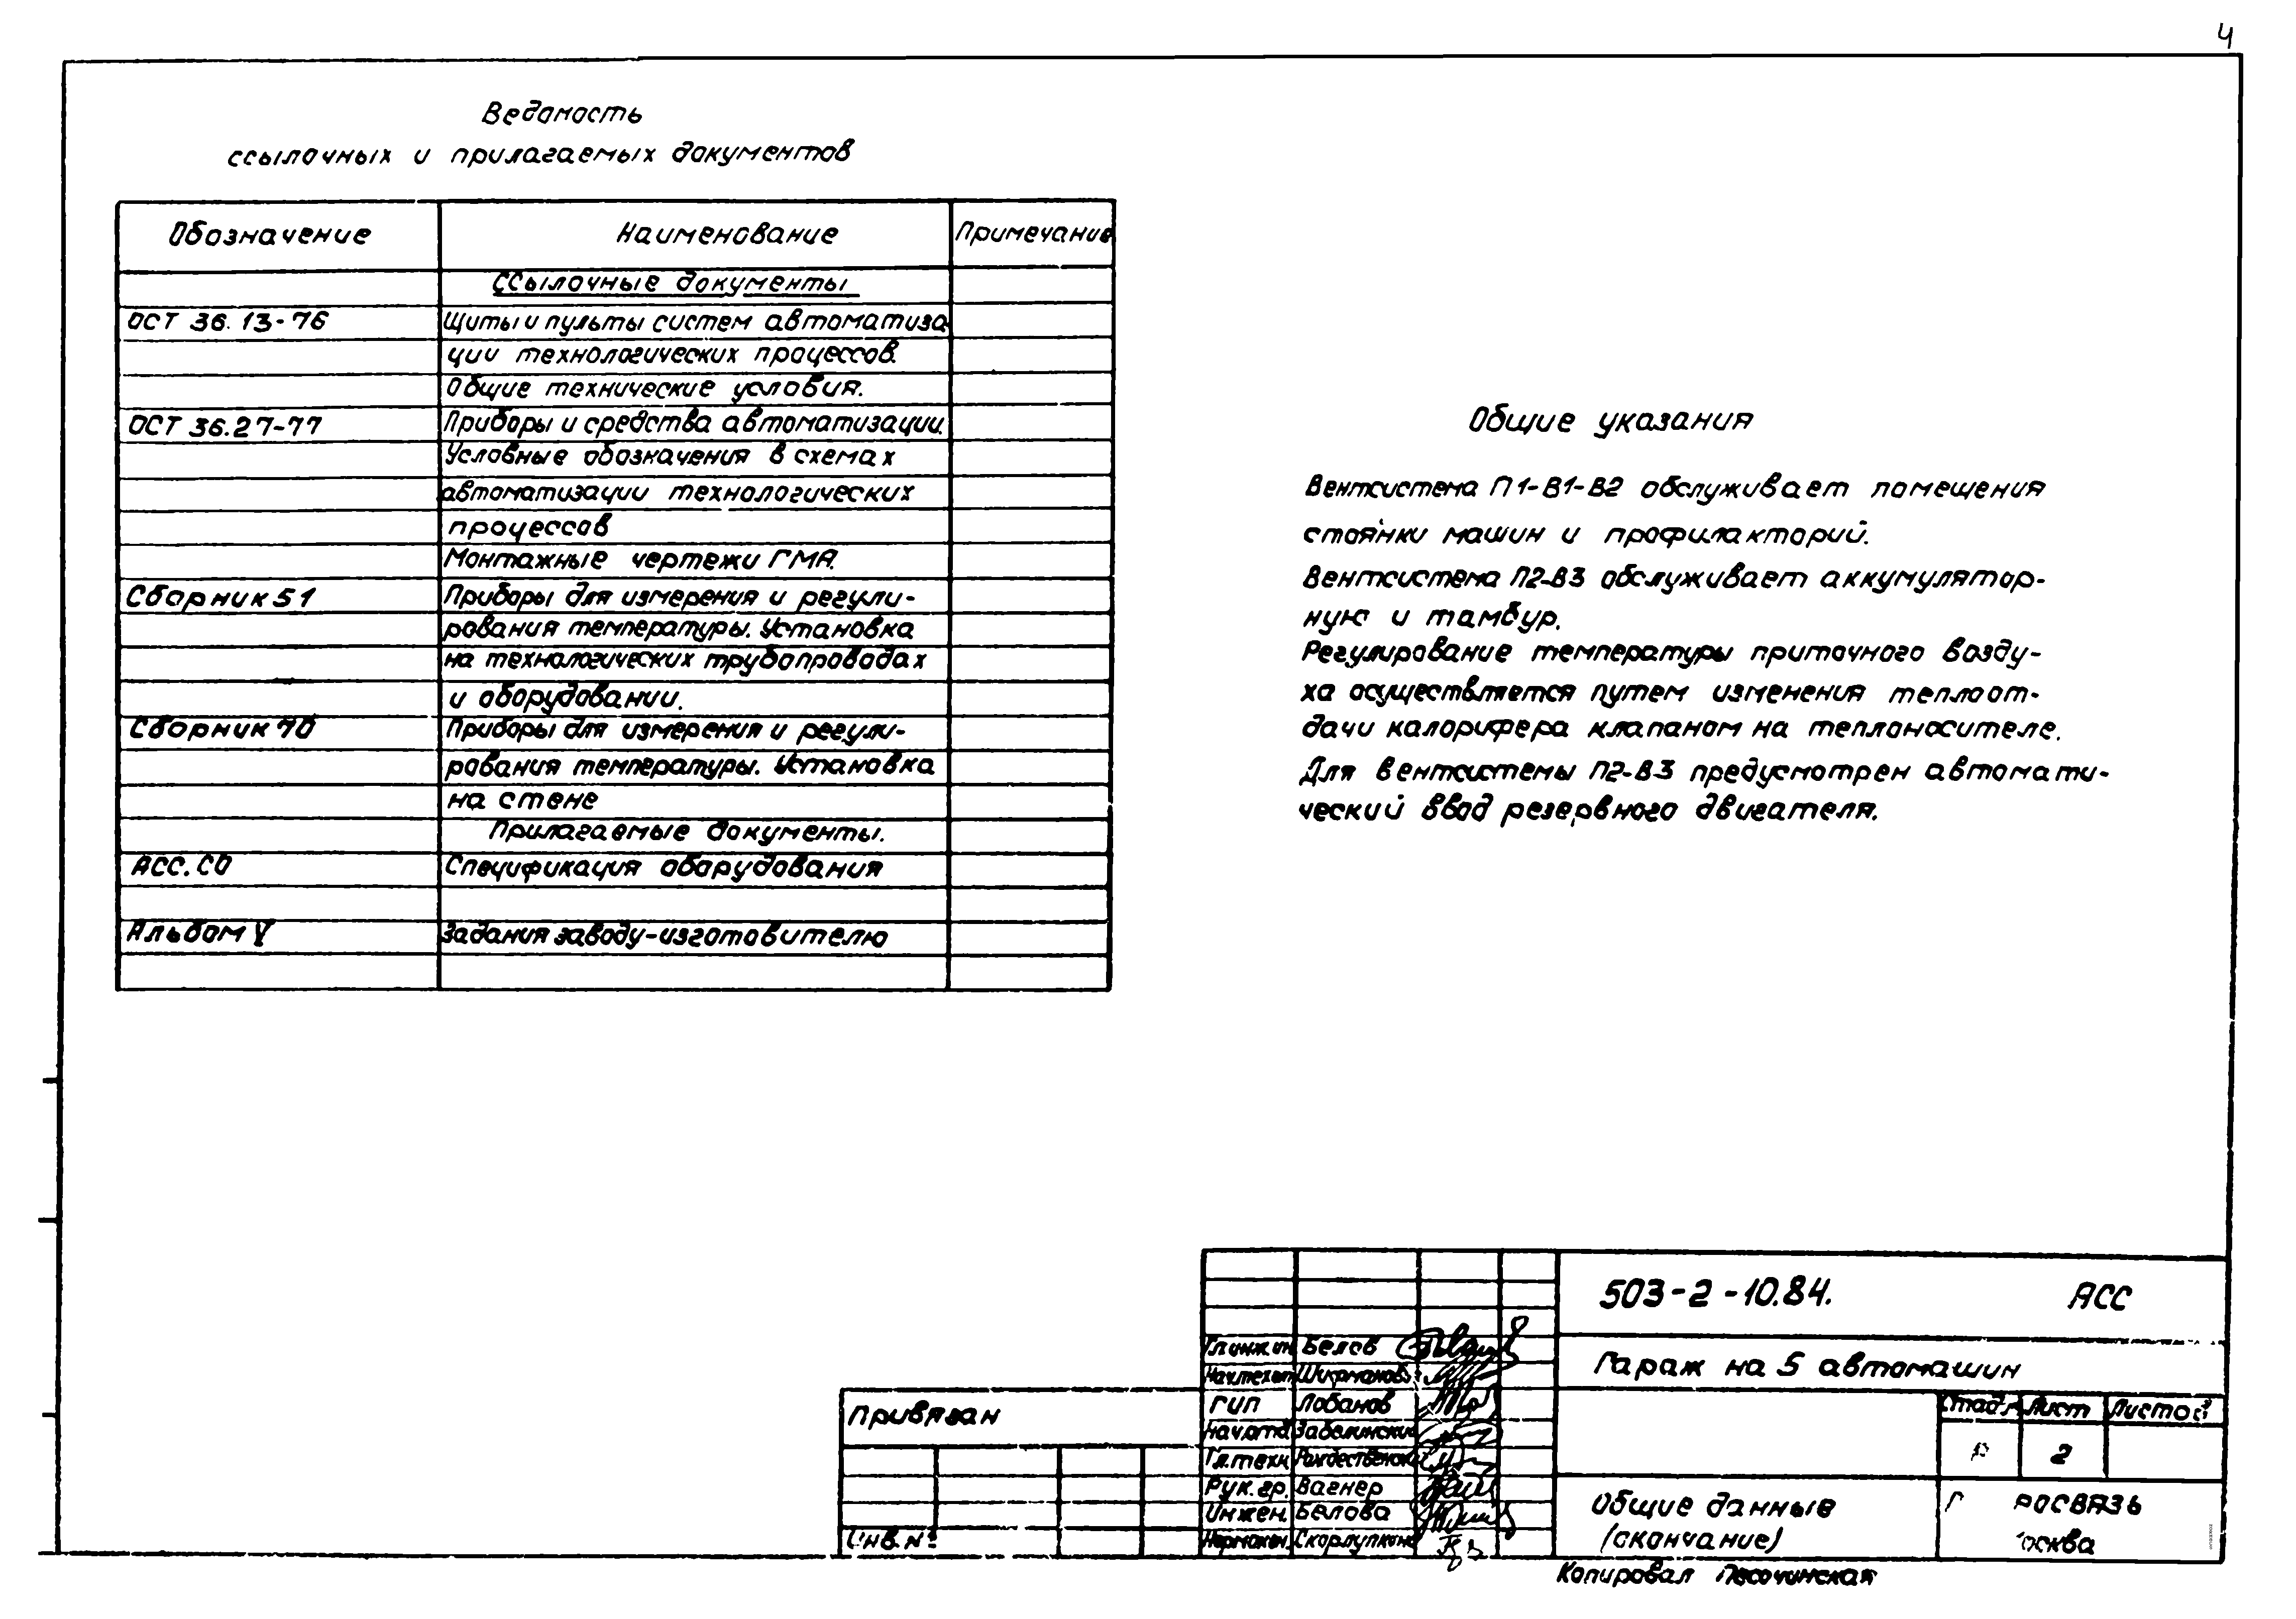 4
Ведомость
ссылочных и прилагаемых документов
Обозначение Наименование Примечание
Ссылочные документы
ОСТ 36.13-76 Щиты и пульты систем автоматиза-
ции технологических процессов.
Общие технические условия.
ОСТ 36.27-77 Приборы и средства автоматизации.
Условные обозначения в схемах
автоматизации технологических
процессов
Монтажные чертежи ГМА.
Сборник 51 Приборы для измерения и регули-
рования температуры. Установка
на технологических трубопроводах
и оборудовании.
Сборник 70 Приборы для измерения и регули-
рования температуры. Установка
на стене
Прилагаемые документы.
АСС.СО Спецификация оборудования
Альбом V Задания заводу-изготовителю
Общие указания
Вентсистема П1-В1-В2 обслуживает помещения
стоянки машин и профилакторий.
Вентсистема П2-В3 обслуживает аккумулятор-
ную и тамбур.
Регулирование температуры приточного возду-
ха осуществляется путем изменения теплоот-
дачи калорифера клапаном на теплоносителе.
Для вентсистемы П2-В3 предусмотрен автомати-
ческий ввод резервного двигателя.
503-2-10.84. АСС
Гараж на 5 автомашин
Стад. Лист Листов
Р 2
Общие данные
(окончание)
Гл.инж.ин Белов
ГИП Лобанов
Нач.отд Забелинский
Гл.техн. Рождественск
Рук.гр. Вагнер
Инжен. Белова
Нормокон.
Привязан
Инв.№
Г РОСВЯЗЬ
осква
Копировал Песочинская